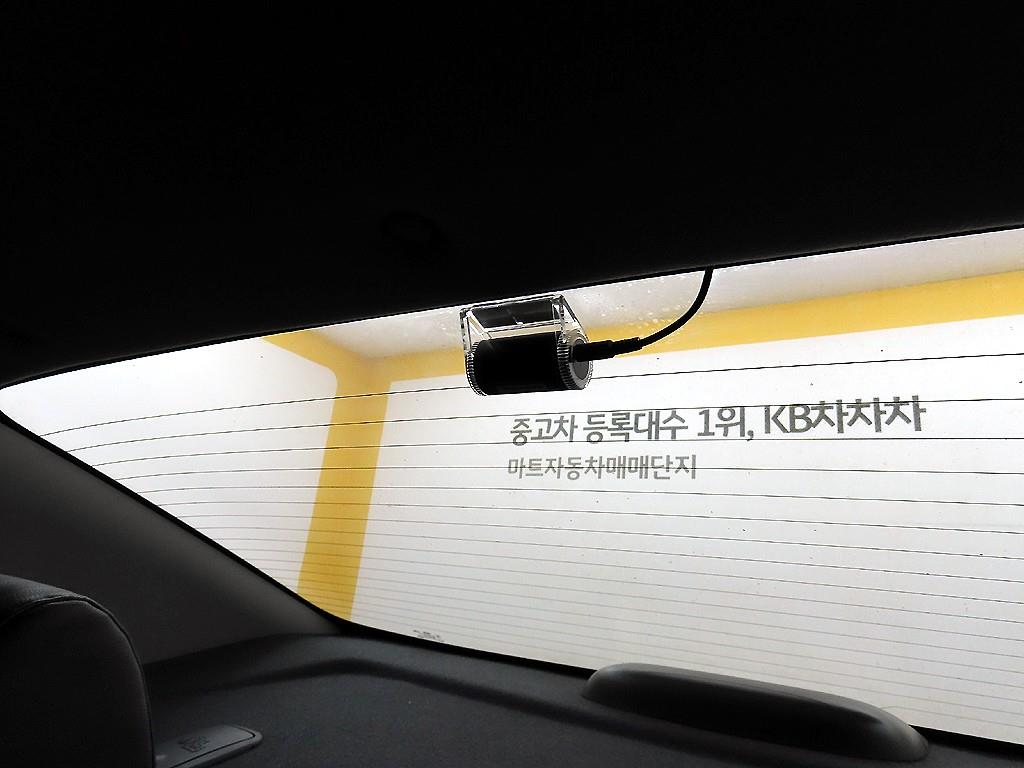 중고차 등록대수 1위, KB차차차
마트자동차매매단지